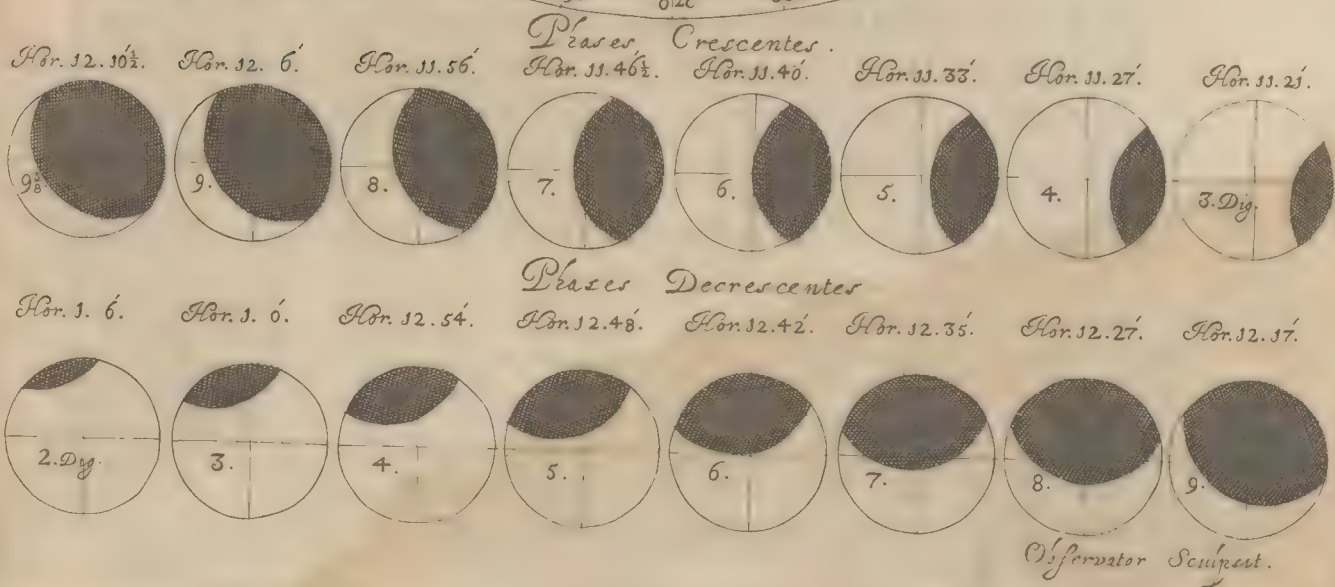 Phases Crescentes.
Hor. 12. 10½. Hor. 12. 6. Hor. 11. 56. Hor. 11. 46½. Hor. 11. 40. Hor. 11. 33. Hor. 11. 27. Hor. 11. 21.
9⅜. 9. 8. 7. 6. 5. 4. 3. Dig.
Phases Decrescentes
Hor. 1. 6. Hor. 1. 0. Hor. 12. 54. Hor. 12. 48. Hor. 12. 42. Hor. 12. 35. Hor. 12. 27. Hor. 12. 17.
2. Dig. 3. 4. 5. 6. 7. 8. 9.
Observator Sculpsit.